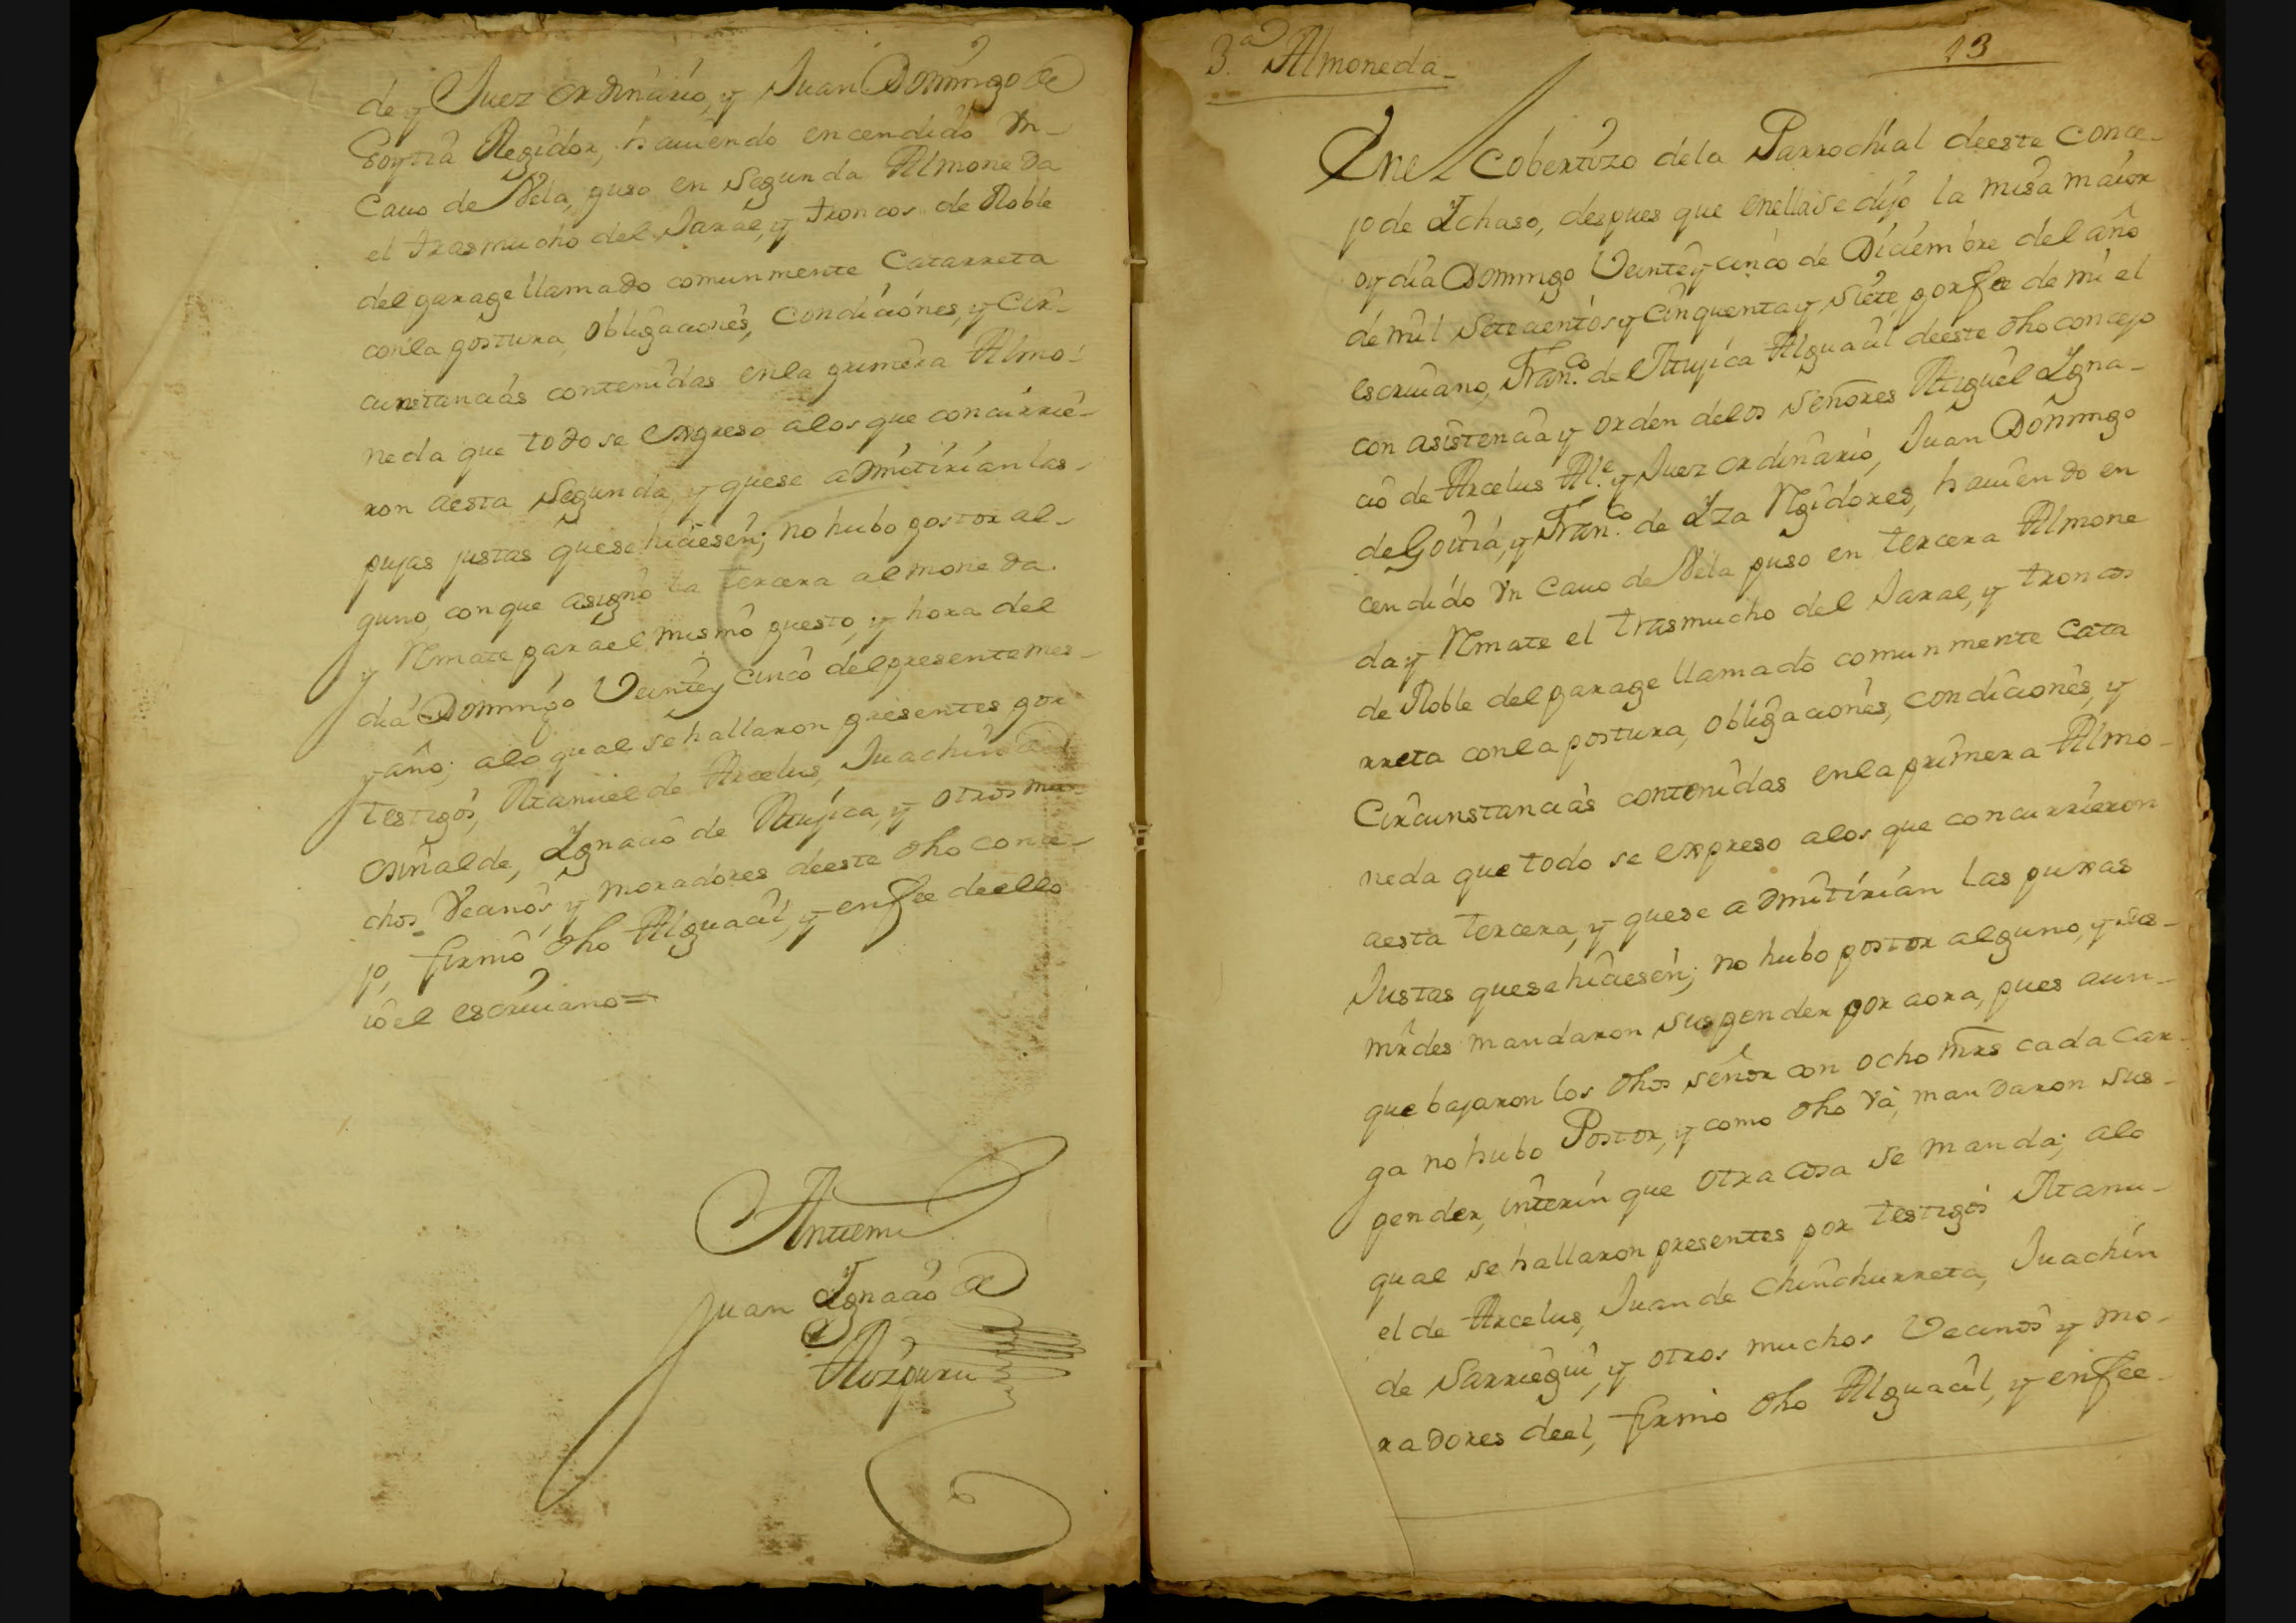 de y Juez ordinario, y Juan Domingo de
Goytia Regidor, hauiendo encendido vn
Cauo de Vela, puso en Segunda Almoneda
el trasmucho del Jaral, y troncos de Roble
del parage llamado comunmente Catarreta
con la postura, obligaciones, condiciones, y Cir-
cunstancias contenidas en la primera Almo-
neda que todo se expreso alos que concurrie-
ron aesta Segunda, y quese admitirian las
pujas justas quese hiciesen; no hubo postor al-
guno, con que asigno la tercera almoneda
y Rmate para el mismo puesto, y hora del
dia Domingo Veintey cinco del presente mes
y año; alo qual se hallaron presentes por
testigos, Manuel de Arcelus, Juachin de
Osinalde, Ignacio de Mujica, y otros mu-
chos Vecinos, y moradores deeste dho conce-
jo, firmo dho Alguacil, y enfee deello
io el escriuano=
Antemi
Juan Ignacio de
Aozpuru
3.a Almoneda
13
Enel Cobertizo dela Parrochial deeste Conce-
jo de Ichaso, despues que enella se dijo la misa maior
oy dia Domingo Veintey cinco de Diciembre del año
de mil Setecientos y Cinquenta y Siete, por fee de mi el
escriuano, Fran.co de Mujica Alguacil deeste dho concejo
con asistencia y orden delos Señores Miguel Igna-
cio de Arcelus Al.e y Juez ordinario, Juan Domingo
de Goitia, y Fran.co de Iza Rgidores, hauiendo en
cendido vn Cauo de Vela puso en tercera Almone
da y Rmate el trasmucho del Jaral, y troncos
de Roble del parage llamado comunmente Cata
rreta conla postura, obligaciones, condiciones, y
Circunstancias contenidas enla primera Almo-
neda que todo se expreso alos que concurrieron
aesta tercera, y quese admitirian las puxas
Justas quese hiciesen; no hubo postor alguno, y sus-
mrdes mandaron suspender por aora, pues aun-
que bajaron los dhos señor con ocho mrs cada Car-
ga no hubo Postor, y como dho vá, mandaron sus-
pender, interin que otra cosa se manda; alo
qual se hallaron presentes por testigos Manu-
el de Arcelus, Juan de Chinchurreta, Juachin
de Sarriegui, y otros muchos Vecinos y mo-
radores deel, firmo dho Alguacil, y enfee